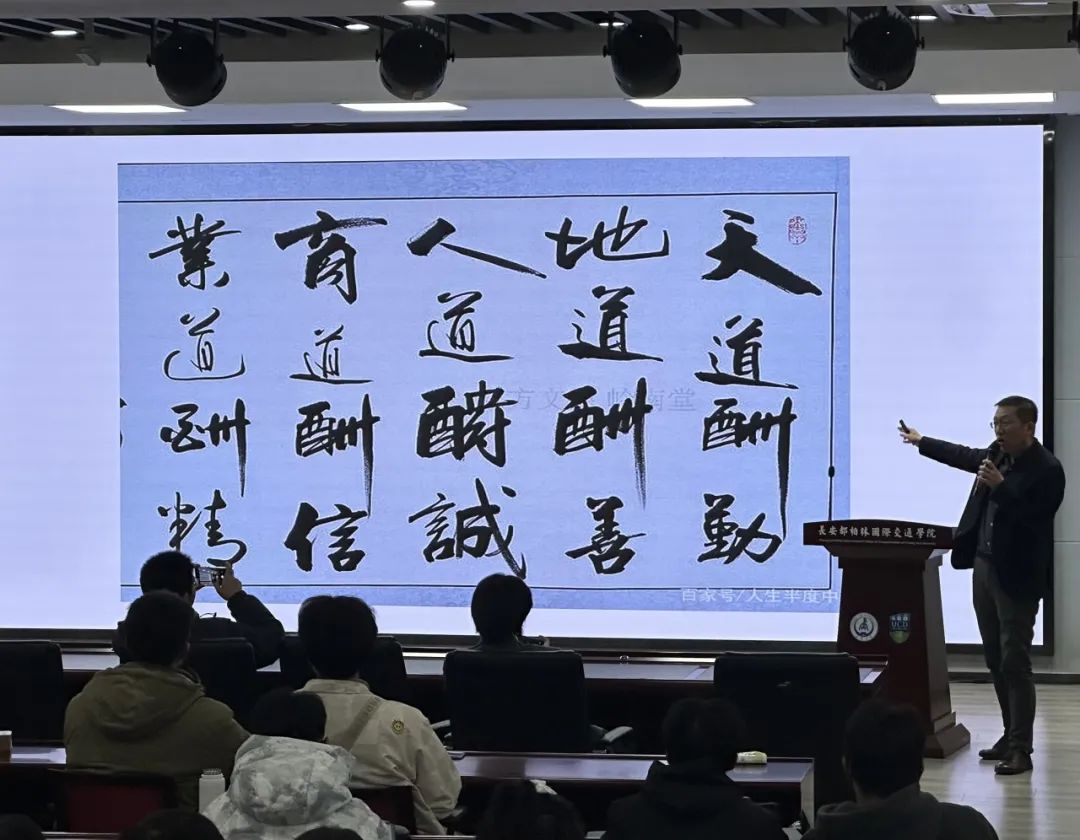 天道酬勤
地道酬善
人道酬誠
商道酬信
業道酬精
百家号/人生半度中
長安都柏林國際交通學院
UCD